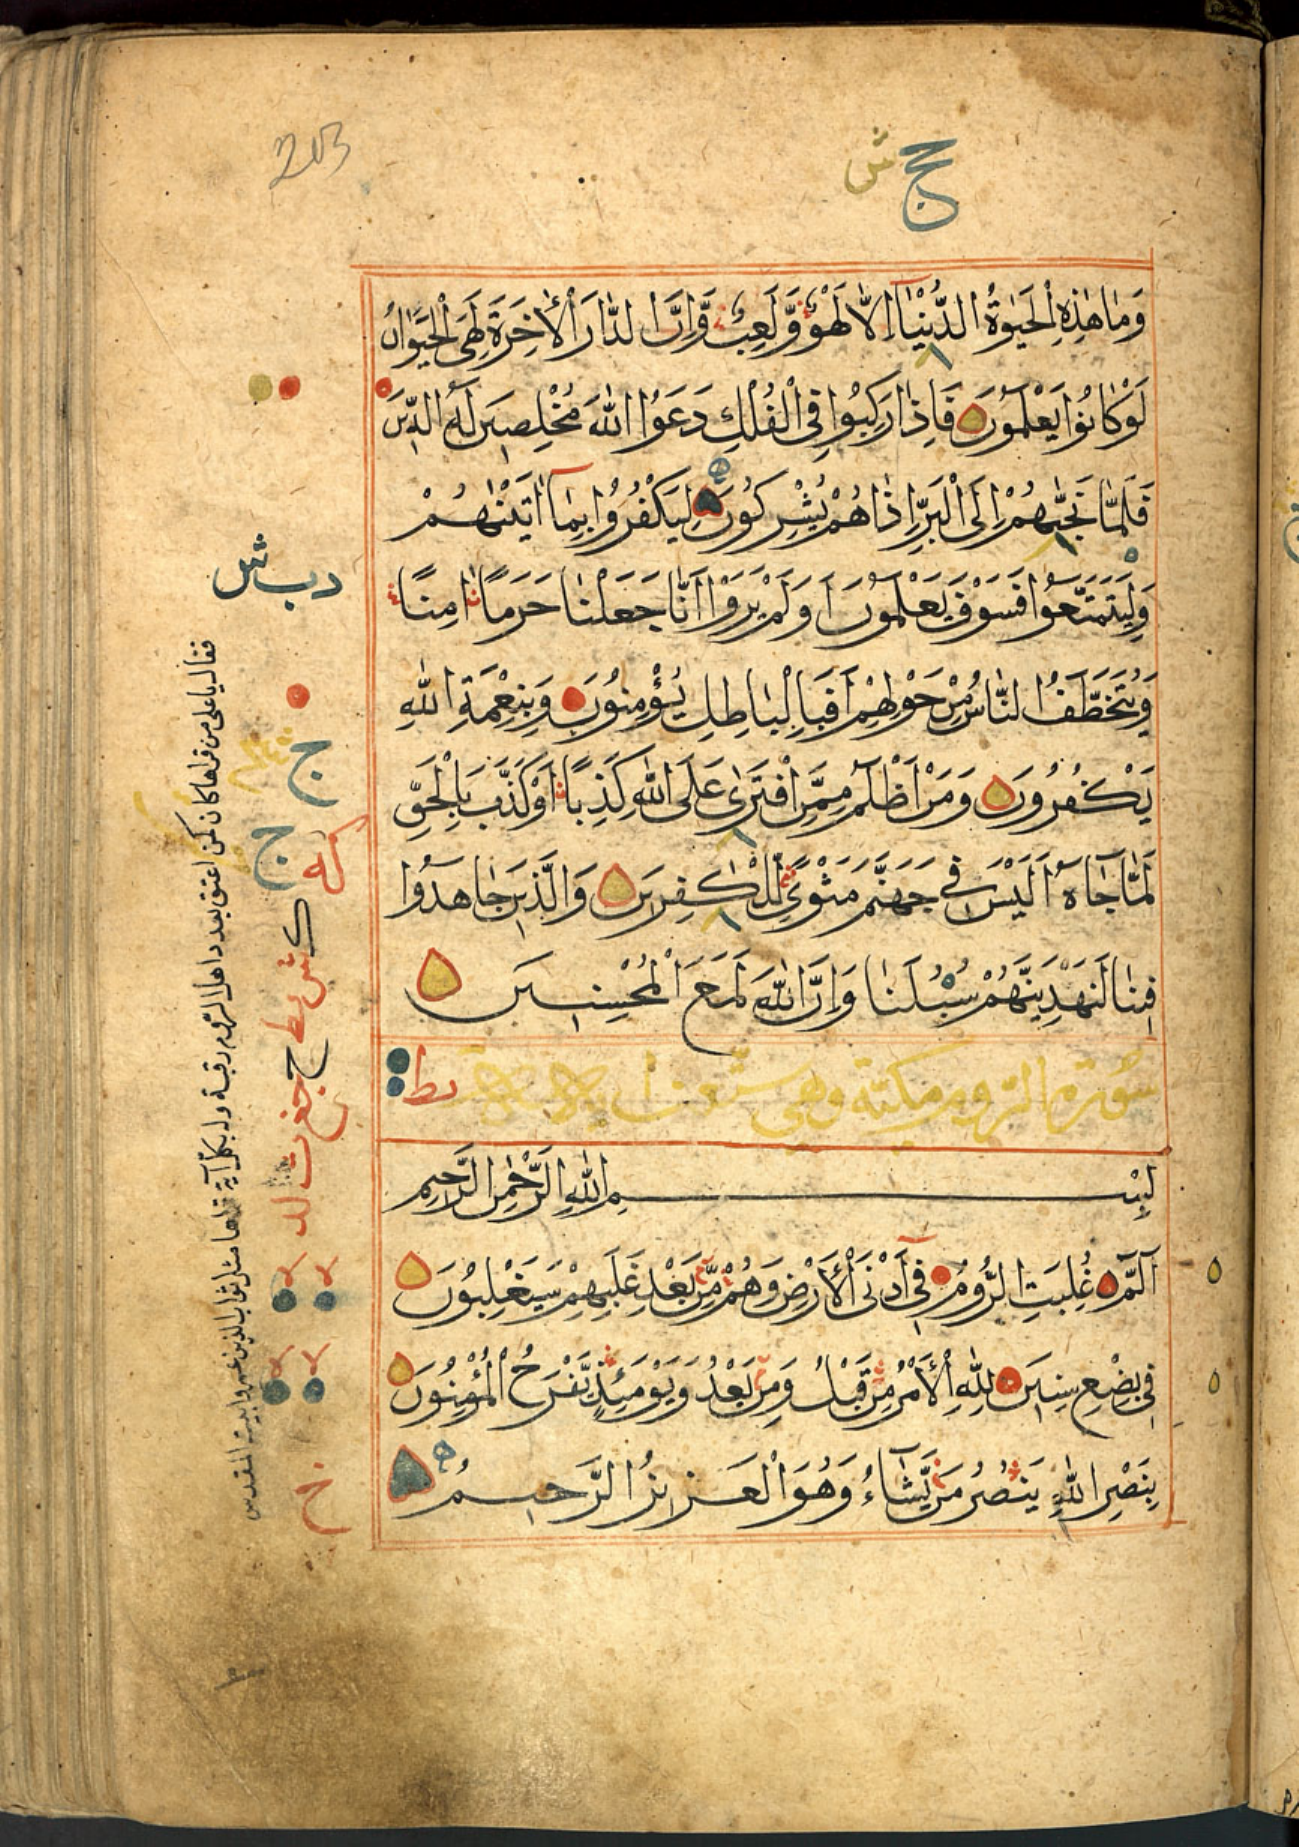 203
حج ش
وَمَا هٰذِهِ الْحَيٰوةُ الدُّنْيَآ اِلَّا لَهْوٌ وَّلَعِبٌ وَّاِنَّ الدَّارَ الْاٰخِرَةَ لَهِيَ الْحَيَوَانُ
لَوْ كَانُوْا يَعْلَمُوْنَ فَاِذَا رَكِبُوْا فِي الْفُلْكِ دَعَوُا اللّٰهَ مُخْلِصِيْنَ لَهُ الدِّيْنَ
فَلَمَّا نَجّٰىهُمْ اِلَى الْبَرِّ اِذَا هُمْ يُشْرِكُوْنَ لِيَكْفُرُوْا بِمَآ اٰتَيْنٰهُمْ
وَلِيَتَمَتَّعُوْا فَسَوْفَ يَعْلَمُوْنَ اَوَلَمْ يَرَوْا اَنَّا جَعَلْنَا حَرَمًا اٰمِنًا
وَّيُتَخَطَّفُ النَّاسُ مِنْ حَوْلِهِمْ اَفَبِالْبَاطِلِ يُؤْمِنُوْنَ وَبِنِعْمَةِ اللّٰهِ
يَكْفُرُوْنَ وَمَنْ اَظْلَمُ مِمَّنِ افْتَرٰى عَلَى اللّٰهِ كَذِبًا اَوْ كَذَّبَ بِالْحَقِّ
لَمَّا جَآءَهُ اَلَيْسَ فِيْ جَهَنَّمَ مَثْوًى لِّلْكٰفِرِيْنَ وَالَّذِيْنَ جَاهَدُوْا
فِيْنَا لَنَهْدِيَنَّهُمْ سُبُلَنَا وَاِنَّ اللّٰهَ لَمَعَ الْمُحْسِنِيْنَ
سورة الروم مكية وهي ستون
بِسْمِ اللّٰهِ الرَّحْمٰنِ الرَّحِيْمِ
الٓمّٓ غُلِبَتِ الرُّوْمُ فِيْٓ اَدْنَى الْاَرْضِ وَهُمْ مِّنْ بَعْدِ غَلَبِهِمْ سَيَغْلِبُوْنَ
فِيْ بِضْعِ سِنِيْنَ لِلّٰهِ الْاَمْرُ مِنْ قَبْلُ وَمِنْ بَعْدُ وَيَوْمَئِذٍ يَّفْرَحُ الْمُؤْمِنُوْنَ
بِنَصْرِ اللّٰهِ يَنْصُرُ مَنْ يَّشَآءُ وَهُوَ الْعَزِيْزُ الرَّحِيْمُ
فقال يا على من قراها كان كمن اعتق بعدد اهل الروم رقبة وله بكل آية قراها مثل ثواب الذين عمروا بيت المقدس